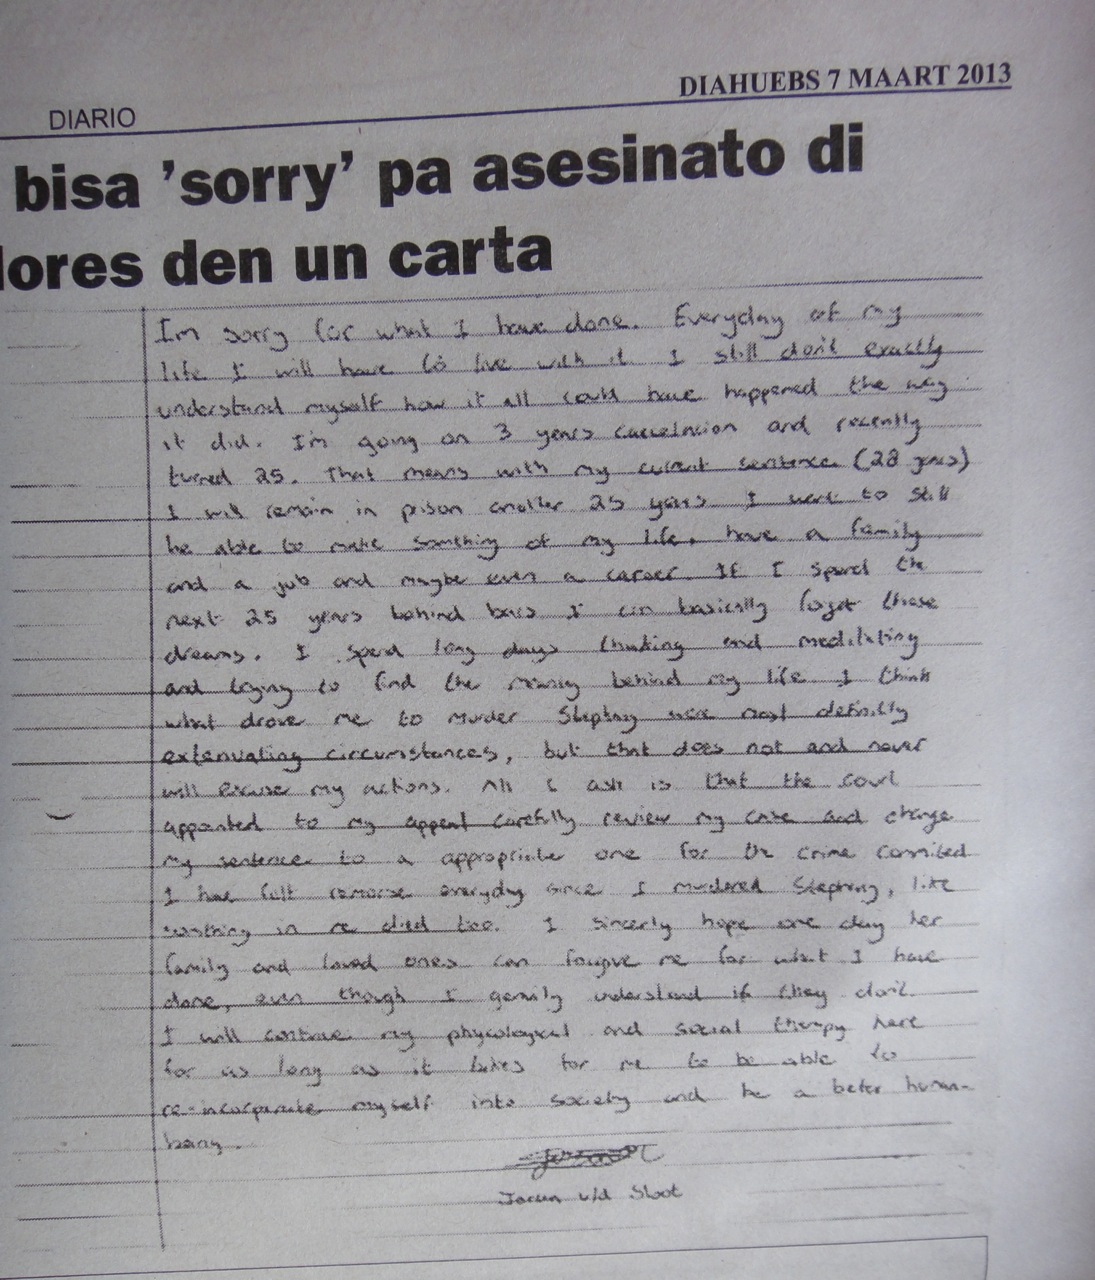 DIAHUEBS 7 MAART 2013
DIARIO
bisa 'sorry' pa asesinato di
lores den un carta
I'm sorry for what I have done. Everyday of my
life I will have to live with it I still don't exactly
understand myself how it all could have happened the way
it did. I'm going on 3 years and recently
turned 25. That means with my current sentence (28 years)
I will remain in prison another 25 years I want to still
be able to make something of my life, have a family
and a job and maybe even a career. If I spend the
next 25 years behind bars I can basically forget these
dreams. I spend long days thinking and meditating
and trying to find the behind my life I think
what drove me to murder Stephny were most definitly
extenuating circumstances, but that does not and never
will excuse my actions. All I ask is that the court
appointed to my appeal carefully review my case and change
my sentence to a appropriate one for the crime commited
I have felt remorse everyday since I murdered Stephny, like
somthing in me died too. I sincerly hope one day her
family and loved ones can forgive me for what I have
done, even though I understand if they don't.
I will continue my phycological and social therapy here
for as long as it takes for me to be able to
re-incorporate myself into society and be a beter human-
being.
Joran v/d Sloot